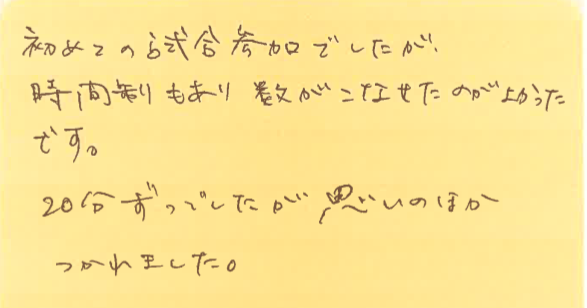 初めての試合参加でしたが、
時間割りもあり 数がこなせたのが よかった
です。
20分ずつでしたが 思いのほか
つかれました。